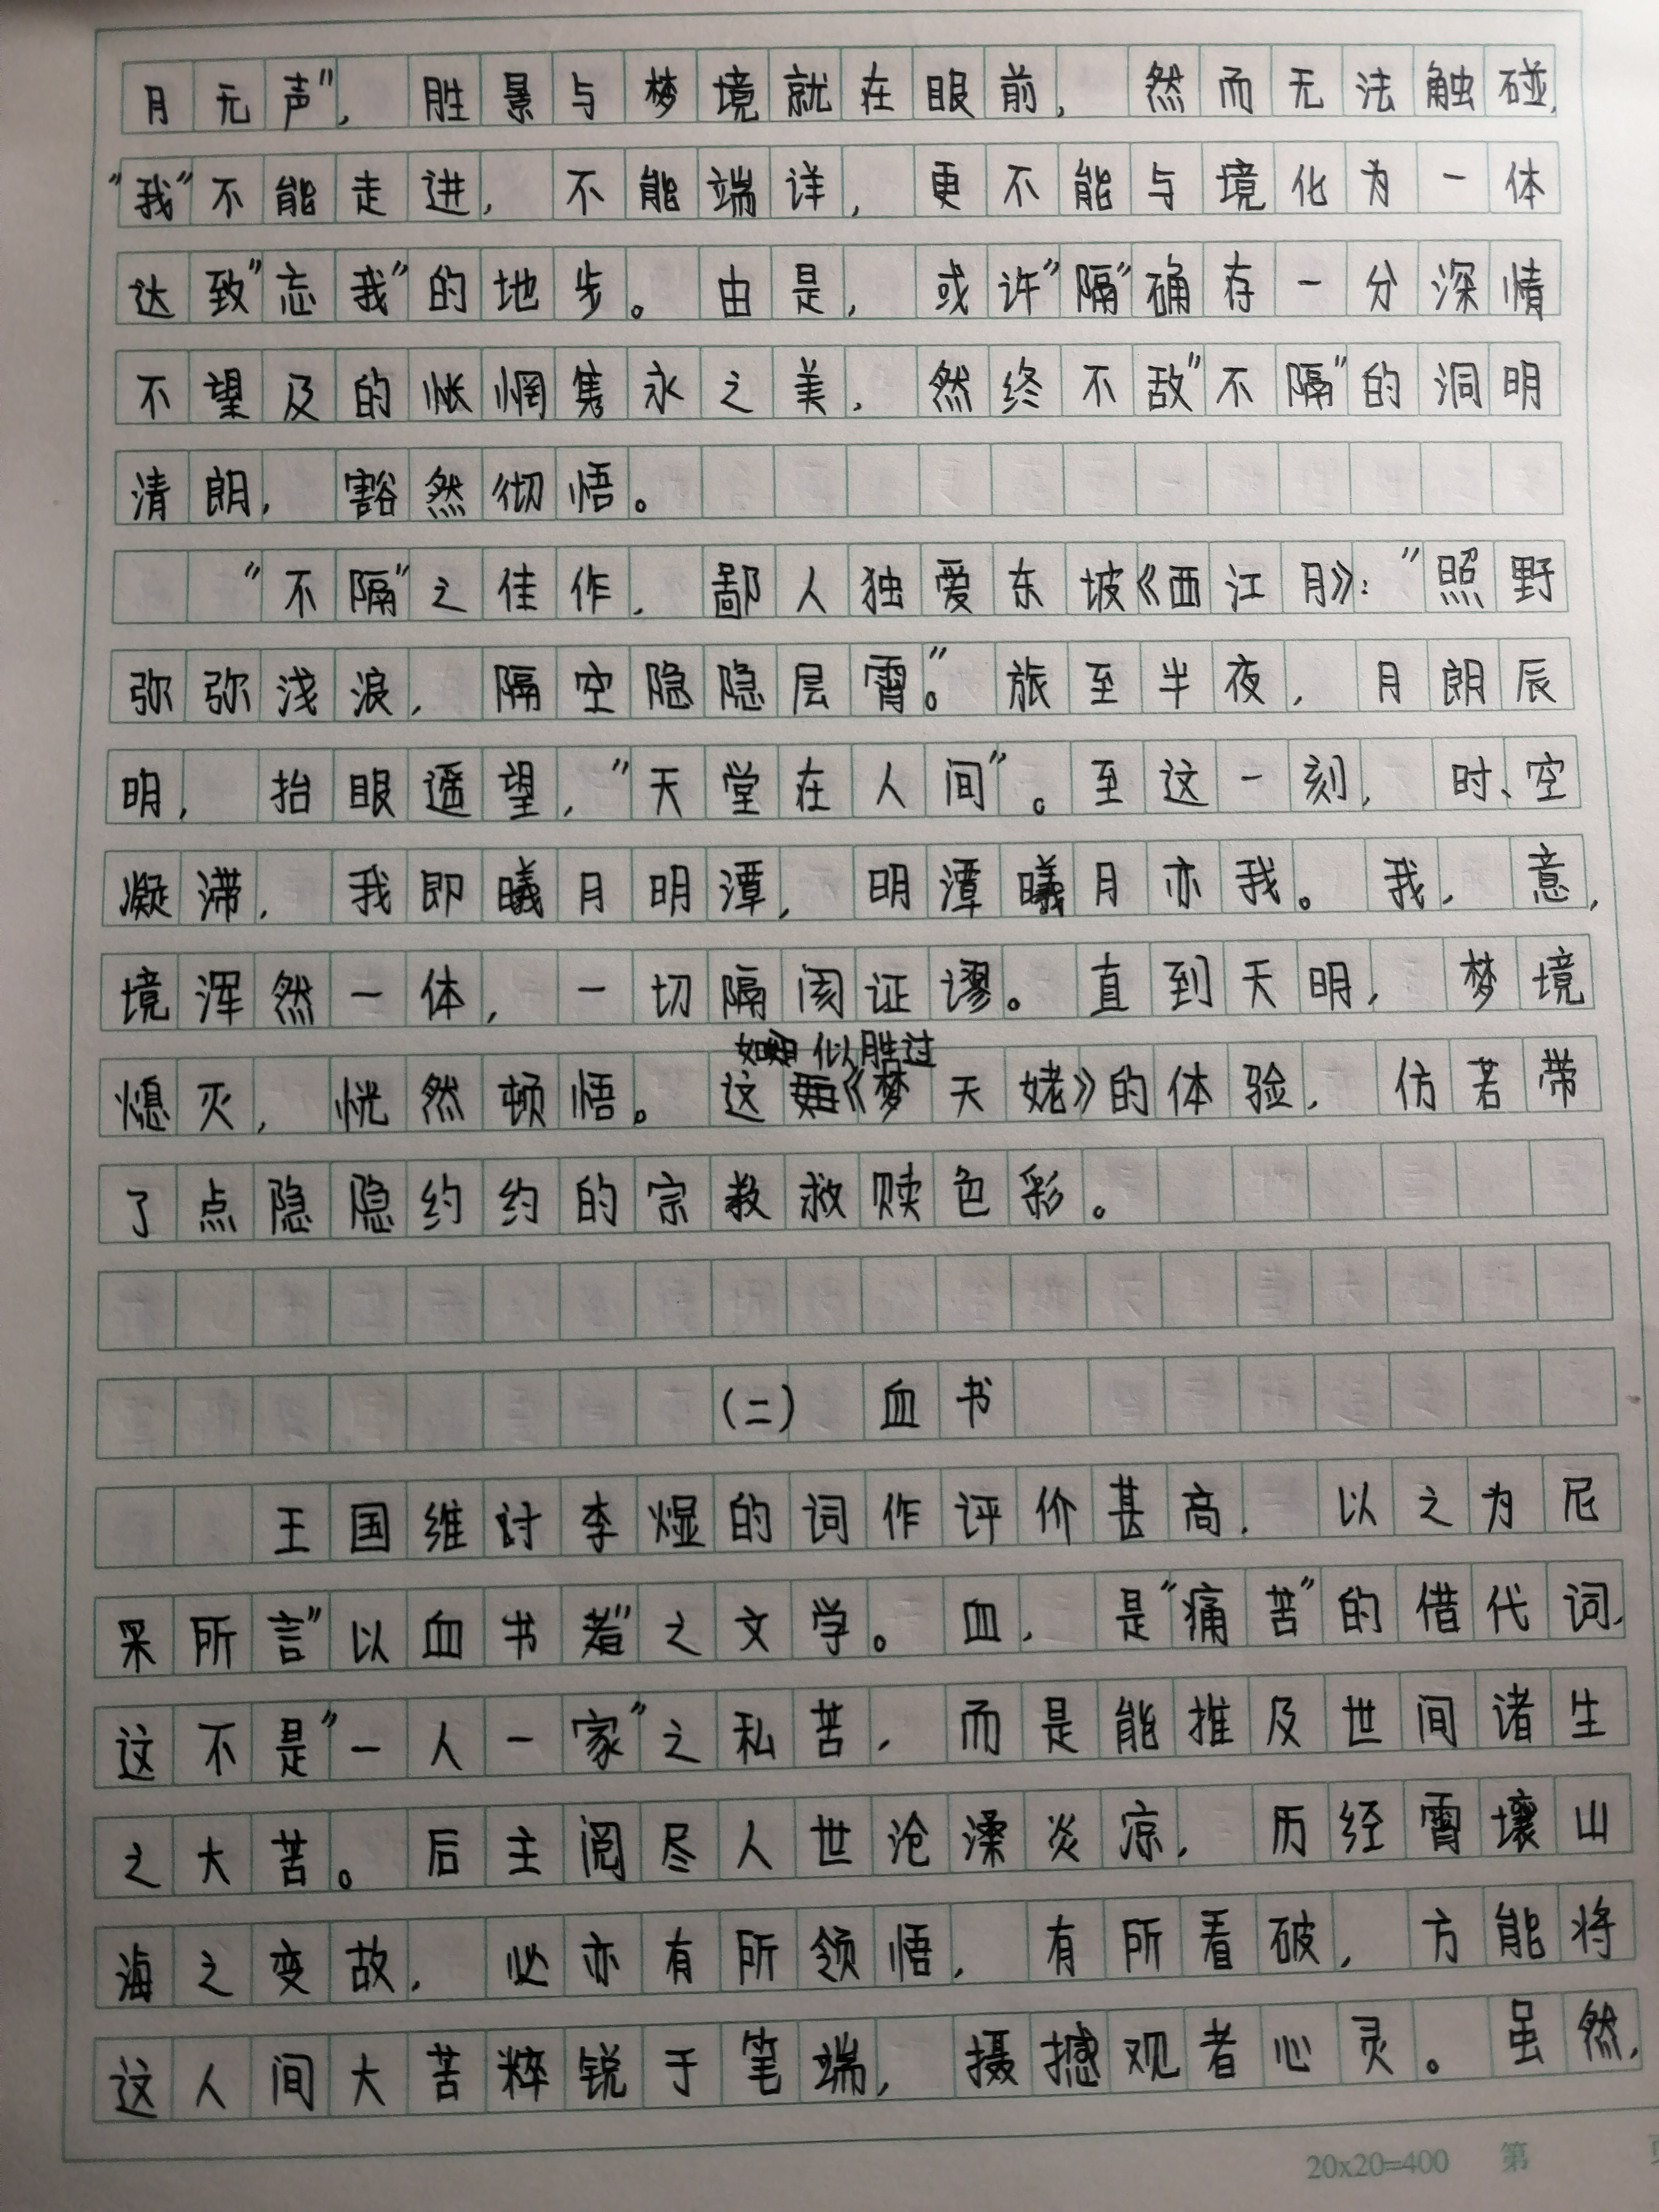 月无声”，胜景与梦境就在眼前，然而无法触碰，
“我”不能走进，不能端详，更不能与境化为一体
达致“忘我”的地步。由是，或许“隔”确存一分深情
不望及的怅惘隽永之美，然终不敌“不隔”的洞明
清朗，豁然彻悟。
“不隔”之佳作，鄙人独爱东坡《西江月》：“照野
弥弥浅浪，隔空隐隐层霄。”旅至半夜，月朗辰
明，抬眼遥望，“天堂在人间”。至这一刻，时、空
凝滞，我即曦月明潭，明潭曦月亦我。我，意，
境浑然一体，一切隔阂证谬。直到天明，梦境
如 似胜过
熄灭，恍然顿悟。这《梦天姥》的体验，仿若带
了点隐隐约约的宗教救赎色彩。
（二） 血书
王国维对李煜的词作评价甚高，以之为尼
采所言“以血书者”之文学。血，是“痛苦”的借代词，
这不是“一人一家”之私苦，而是能推及世间诸生
之大苦。后主阅尽人世沧溱炎凉，历经霄壤山
海之变故，必亦有所领悟，有所看破，方能将
这人间大苦粹锐于笔端，摄撼观者心灵。虽然，
20x20=400 第